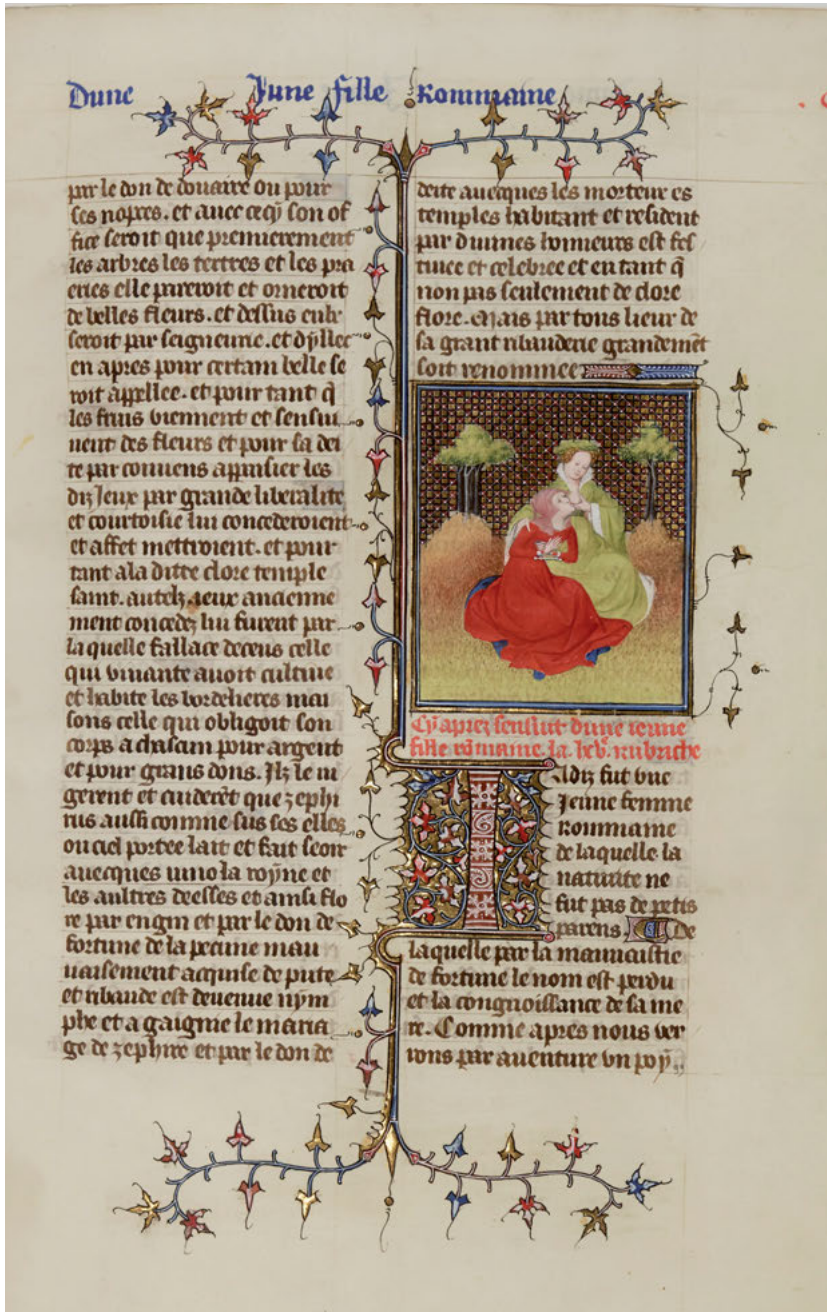 Dune June fille Rommaine
par le don de douaire ou pour
ses nopces. et auec cecy son of
fice seroit que premierement
les arbres les tertres et les pra
eries elle pareroit et orneroit
de belles fleurs. et dessus enle
seroit par seigneurie. et dyllec
en apres pour certain belle se
roit appellee. et pour tant q̄
les fruis viennent et sensui
uent des fleurs et pour sa dei
te par couuiens appaisier les
diz Jeux par grande liberalite
et courtoisie lui concederoient
et affet mettroient. et pour
tant a la ditte clore temple
saint. autelz Jeux ancienne
ment concedez lui furent par
la quelle fallace deceus celle
qui viuante auoit cultiue
et habite les bordelieres mai
sons celle qui obligoit son
corps a chascun pour argent
et pour grans dons. Ilz le iu
gerent et cuiderēt que zephi
rus aussi comme sus ses elles
ou ciel portee lait et fait seoir
auecques iuno la royne et
les aultres deesses et ainsi flo
re par engin et par le don de
fortune de la pecune mau
uaisement acquise de pute
et ribaude est deuenue nym
phe et a gaignie le maria
ge de zephire et par le don de
deite auecques les morteux es
temples habitant et resident
par diuines honneurs est fes
tiuee et celebree et en tant q̄
non pas seulement de clore
flore. Mais par tous lieux de
sa grant ribauderie grandemēt
soit renommee
Cy aprez sensuit dune ieune
fille rōmaine. la lxv. rubriche
Iadiz fut vne
Jeune femme
Rommaine
de laquelle la
natiuite ne
fut pas de petis
parens De
laquelle par la mauuaistie
de fortune le nom est perdu
et la congnoissance de sa me
re. Comme apres nous ver
rons par auenture vn poy